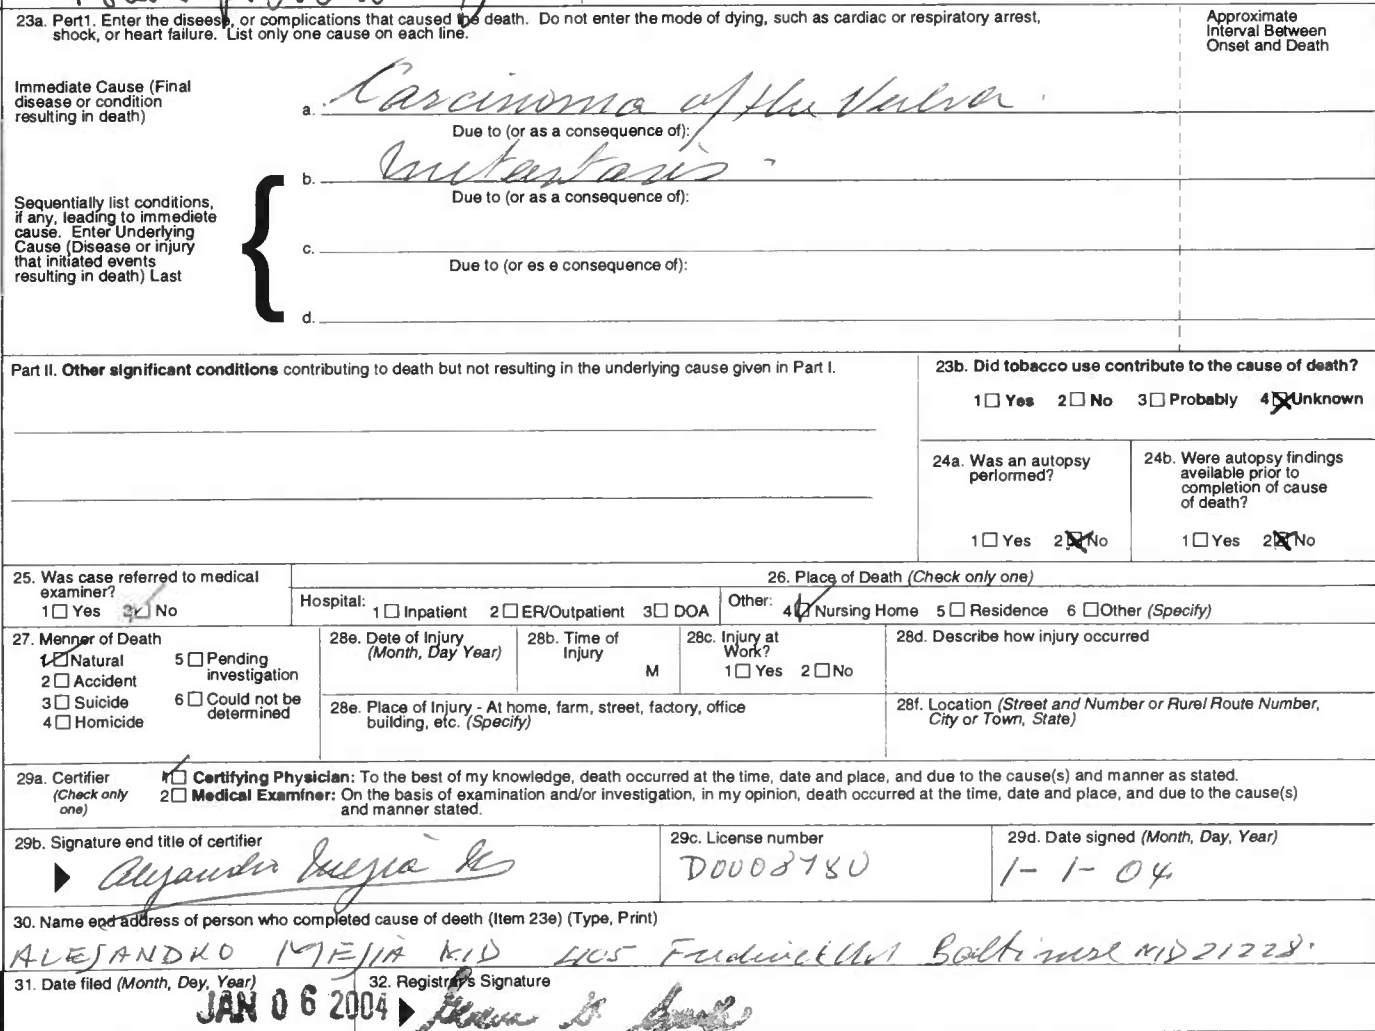 23a. Part1. Enter the disease, or complications that caused the death. Do not enter the mode of dying, such as cardiac or respiratory arrest,
shock, or heart failure. List only one cause on each line.
Approximate
Interval Between
Onset and Death
Immediate Cause (Final
disease or condition
resulting in death)
a. Carcinoma of the Vulva.
Due to (or as a consequence of):
b. metastasis -
Due to (or as a consequence of):
Sequentially list conditions,
if any, leading to immediete
cause. Enter Underlying
Cause (Disease or injury
that initiated events
resulting in death) Last
c.
Due to (or es e consequence of):
d.
Part II. Other significant conditions contributing to death but not resulting in the underlying cause given in Part I.
23b. Did tobacco use contribute to the cause of death?
1☐ Yes 2☐ No 3☐ Probably 4☒ Unknown
24a. Was an autopsy
performed?
1☐ Yes 2☒ No
24b. Were autopsy findings
available prior to
completion of cause
of death?
1☐ Yes 2☒ No
25. Was case referred to medical
examiner?
1☐ Yes 2☑ No
26. Place of Death (Check only one)
Hospital: 1☐ Inpatient 2☐ ER/Outpatient 3☐ DOA Other: 4☑ Nursing Home 5☐ Residence 6☐ Other (Specify)
27. Menner of Death
1☑ Natural
2☐ Accident
3☐ Suicide
4☐ Homicide
5☐ Pending
investigation
6☐ Could not be
determined
28e. Dete of Injury
(Month, Day Year)
28b. Time of
Injury
M
28c. Injury at
Work?
1☐ Yes 2☐ No
28d. Describe how injury occurred
28e. Place of Injury - At home, farm, street, factory, office
building, etc. (Specify)
28f. Location (Street and Number or Rurel Route Number,
City or Town, State)
29a. Certifier
(Check only
one)
1☑ Certifying Physician: To the best of my knowledge, death occurred at the time, date and place, and due to the cause(s) and manner as stated.
2☐ Medical Examiner: On the basis of examination and/or investigation, in my opinion, death occurred at the time, date and place, and due to the cause(s)
and manner stated.
29b. Signature end title of certifier
Alejandro Mejia
29c. License number
D0008780
29d. Date signed (Month, Day, Year)
1-1-04
30. Name end address of person who completed cause of deeth (Item 23e) (Type, Print)
ALEJANDRO MEJIA MD 405 Frederick Baltimore MD 21228.
31. Date filed (Month, Dey, Year)
JAN 06 2004
32. Registrar's Signature